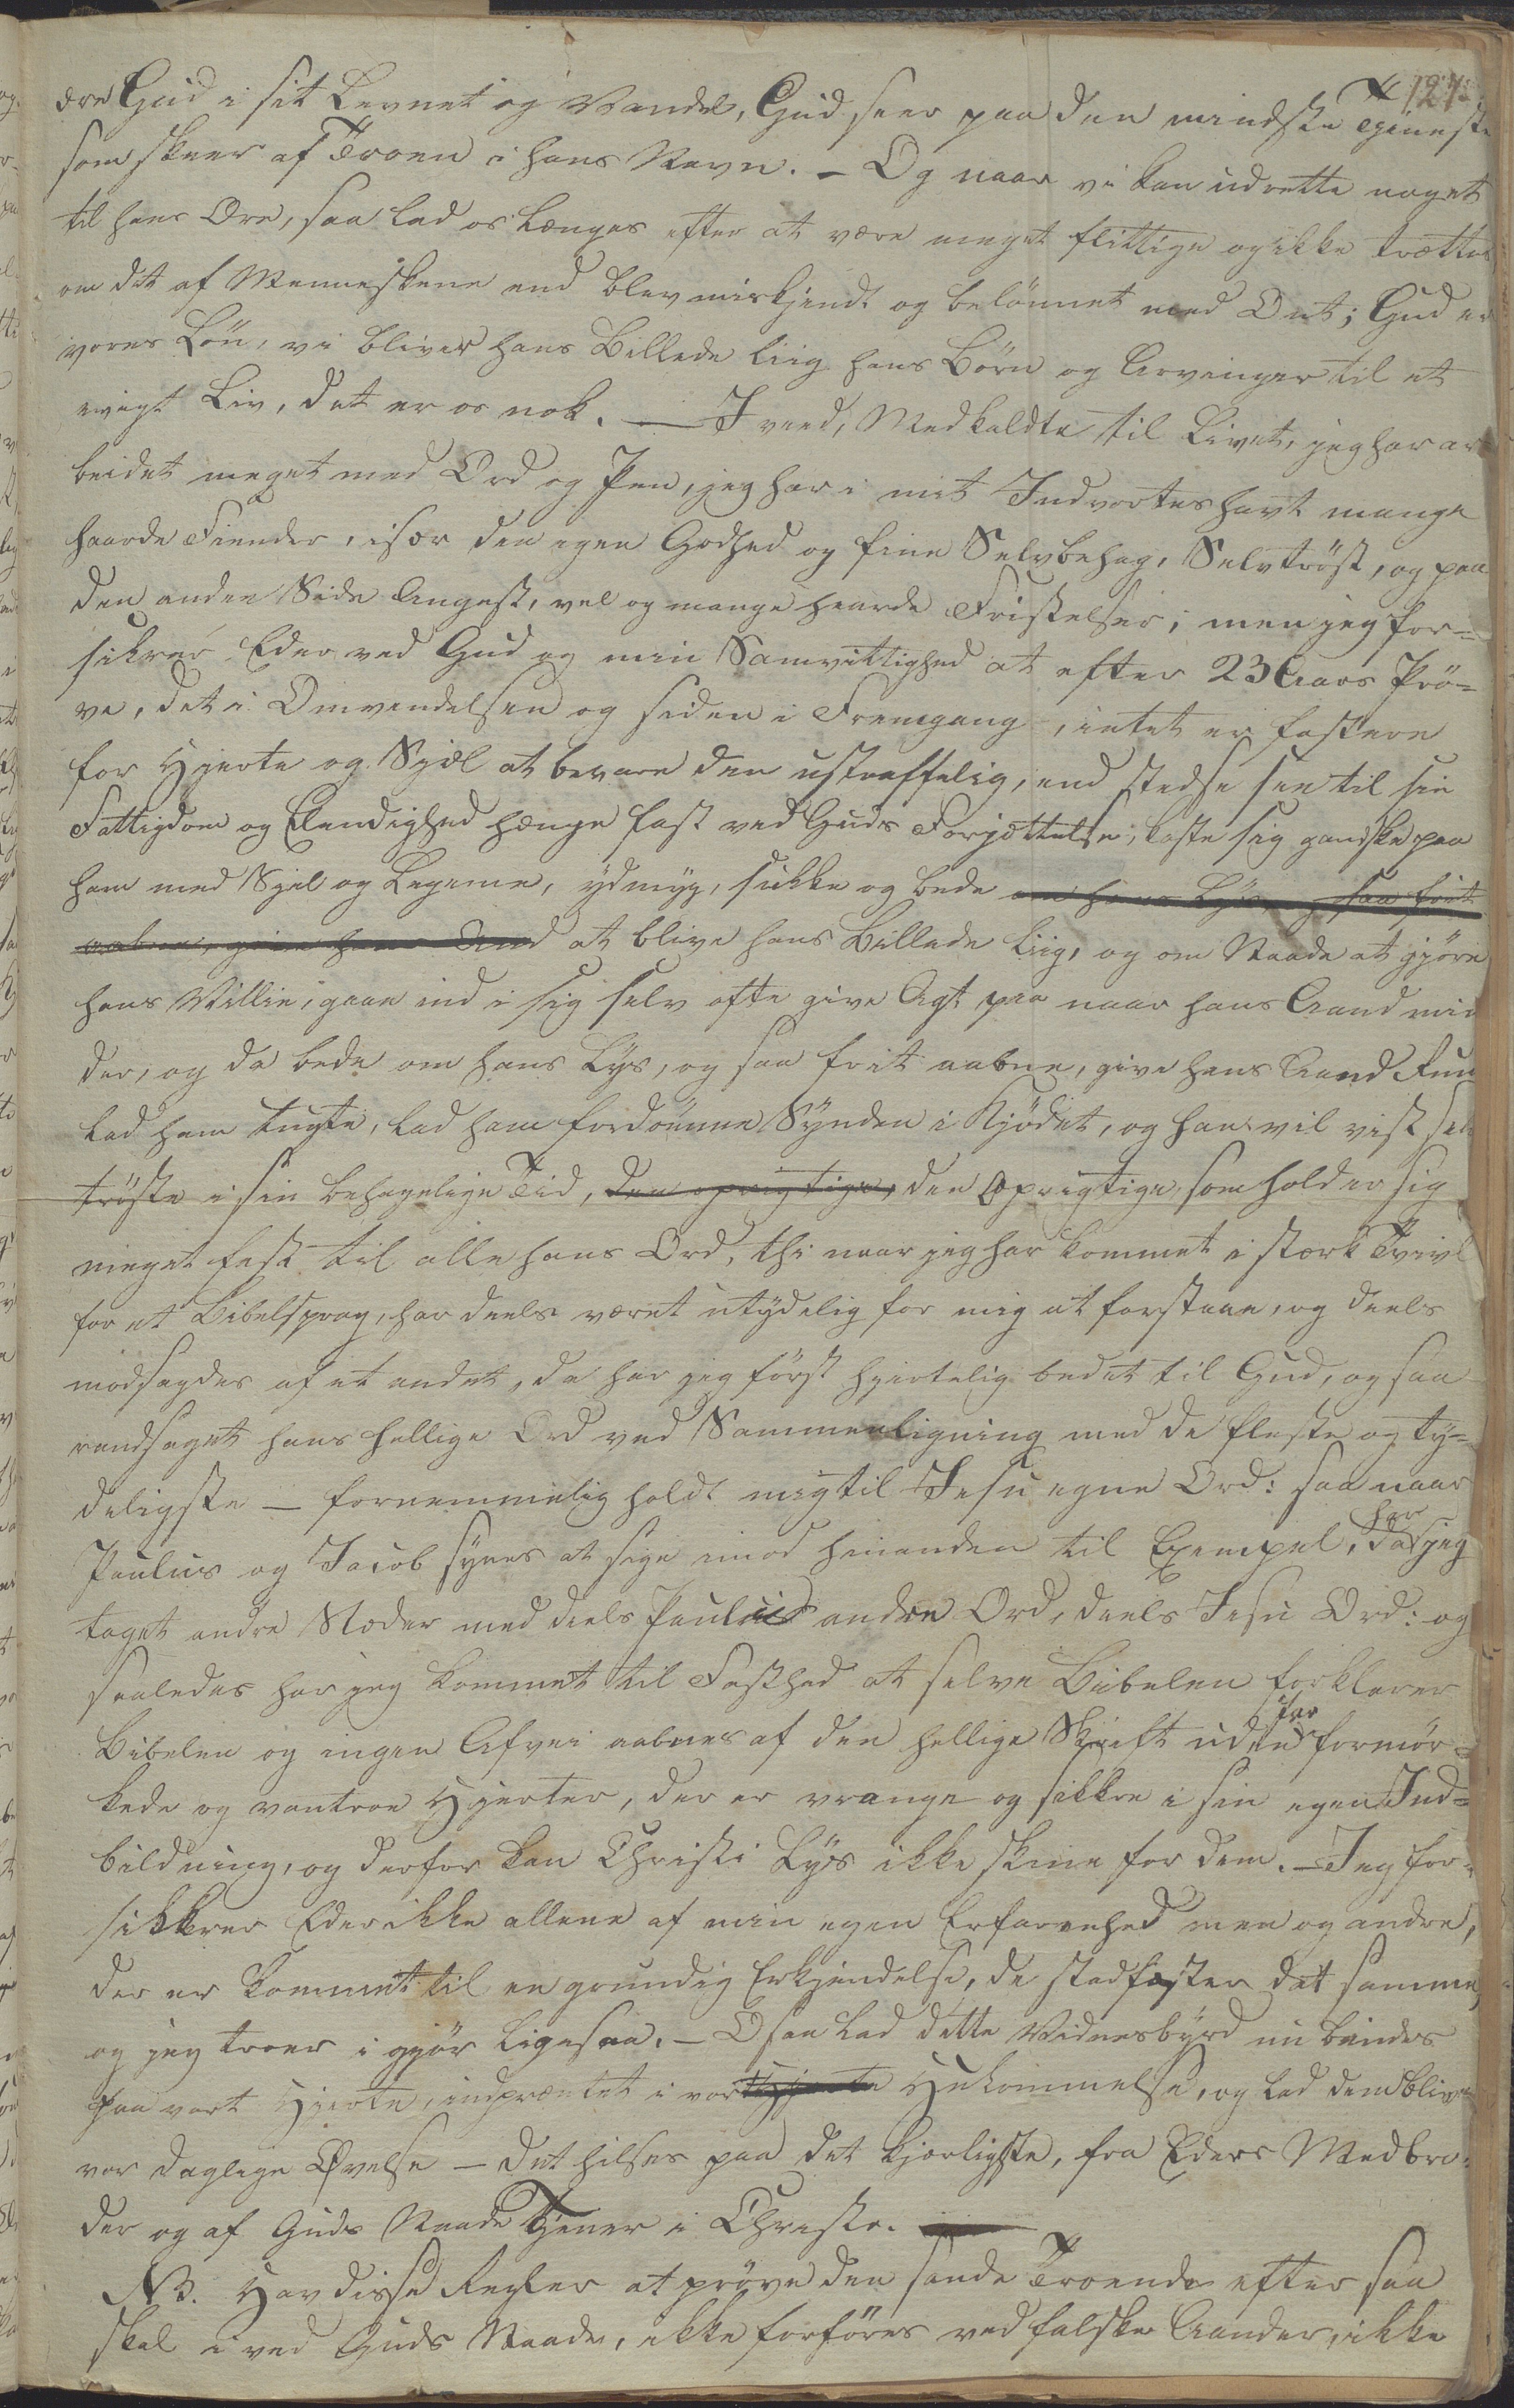 127.
ære Gud i sit Levnet og Vandel, Gud seer paa den mindste Tjeneste
som skeer af Troen i hans Navn. – Og naar vi kan udrette noget
til hans Ære, saa lad os længes efter at være meget flittige og ikke trættes
om det af Menneskene end blev miskjendt og belönnet med Ont; Gud er
vores Lön, vi bliver hans Billede liig hans Börn og Arvinger til et
evigt Liv, det er os nok. — I veed, Medkaldte til Livet, jeg har ar
beidet meget med Ord og Pen, jeg har i mit Indvortes havt mange
haarde Fiender, især den egen Godhed og fine Selvbehag, Selvtröst, og paa
den anden Side Angest, vel og mange haarde Fristelser; men jeg for=
sikrer Eder ved Gud og min Samvittighed at efter 23 Aars Prö=
ve, det i Omvendelsen og siden i Fremgang, intet er fastere
for Hjerte og Sjæl at bevare den ustraffelig, end stedse see til sin
Fattigdom og Elendighed hænge fast ved Guds Forjættelse, kaste sig ganske paa
ham med Sjel og Legeme, ydmyg, sukke og bede om hans Lys, og saa frit
aabne, give hans Aand at blive hans Billede liig, og om Naade at gjöre
hans Villie, gaae ind i sig selv ofte give Agt paa naar hans Aand min
der, og da bede om hans Lys, og saa frit aabne, give hans Aand Rum
lad ham tugte, lad ham fordömme Synden i Kjödet, og han vil vist
tröste i sin behagelige Tid, den oprigtige, den Oprigtige, som holder sig
meget fast til alle hans Ord, thi naar jeg har kommet i stærk Tvivl
for et Bibelsprog, har deels været utydelig for mig at forstaae, og deels
modsagdes af et andet, da har jeg först hjertelig bedet til Gud, og saa
randsaget hans hellige Ord ved Sammenligning med de fleste og ty=
deligste – fornemmelig holdt mig til Jesu egne Ord: saa naar
Paulus og Jacob synes at sige imod hinanden til Exempel, da har jeg
taget andre Stæder med deels Paulus andre Ord, deels Jesu Ord: og
saaledes har jeg kommet til Fasthed at selve Bibelen forklarer
Bibelen og ingen Afvei aabnes af den hellige Skrift uden for formör=
kede og vantroe Hjerter, der er vrange og sikkre i sin egen Ind=
bildning, og derfor kan Christi Lys ikke skine for dem. – Jeg for=
sikkrer Eder ikke allene af min egen Erfarenhed men og andre,
der er kommet til en grundig Erkjendelse, de stadfæster det samme,
og jeg troer i gjör ligesaa. – O saa lad dette Vidnesbyrd nu bindes
paa vort Hjerte, indprentet i vor Hjerte Hukommelse, og lad dem blive
vor daglige Øvelse – Det hilses paa det kjærligste, fra Eders Medbro=
der og af Guds Naade Tjener i Christo.
NB. Hav disse Regler at pröve den sande Troende efter saa
skal i ved Guds Naade, ikke forföres ved falske Aander, ikke